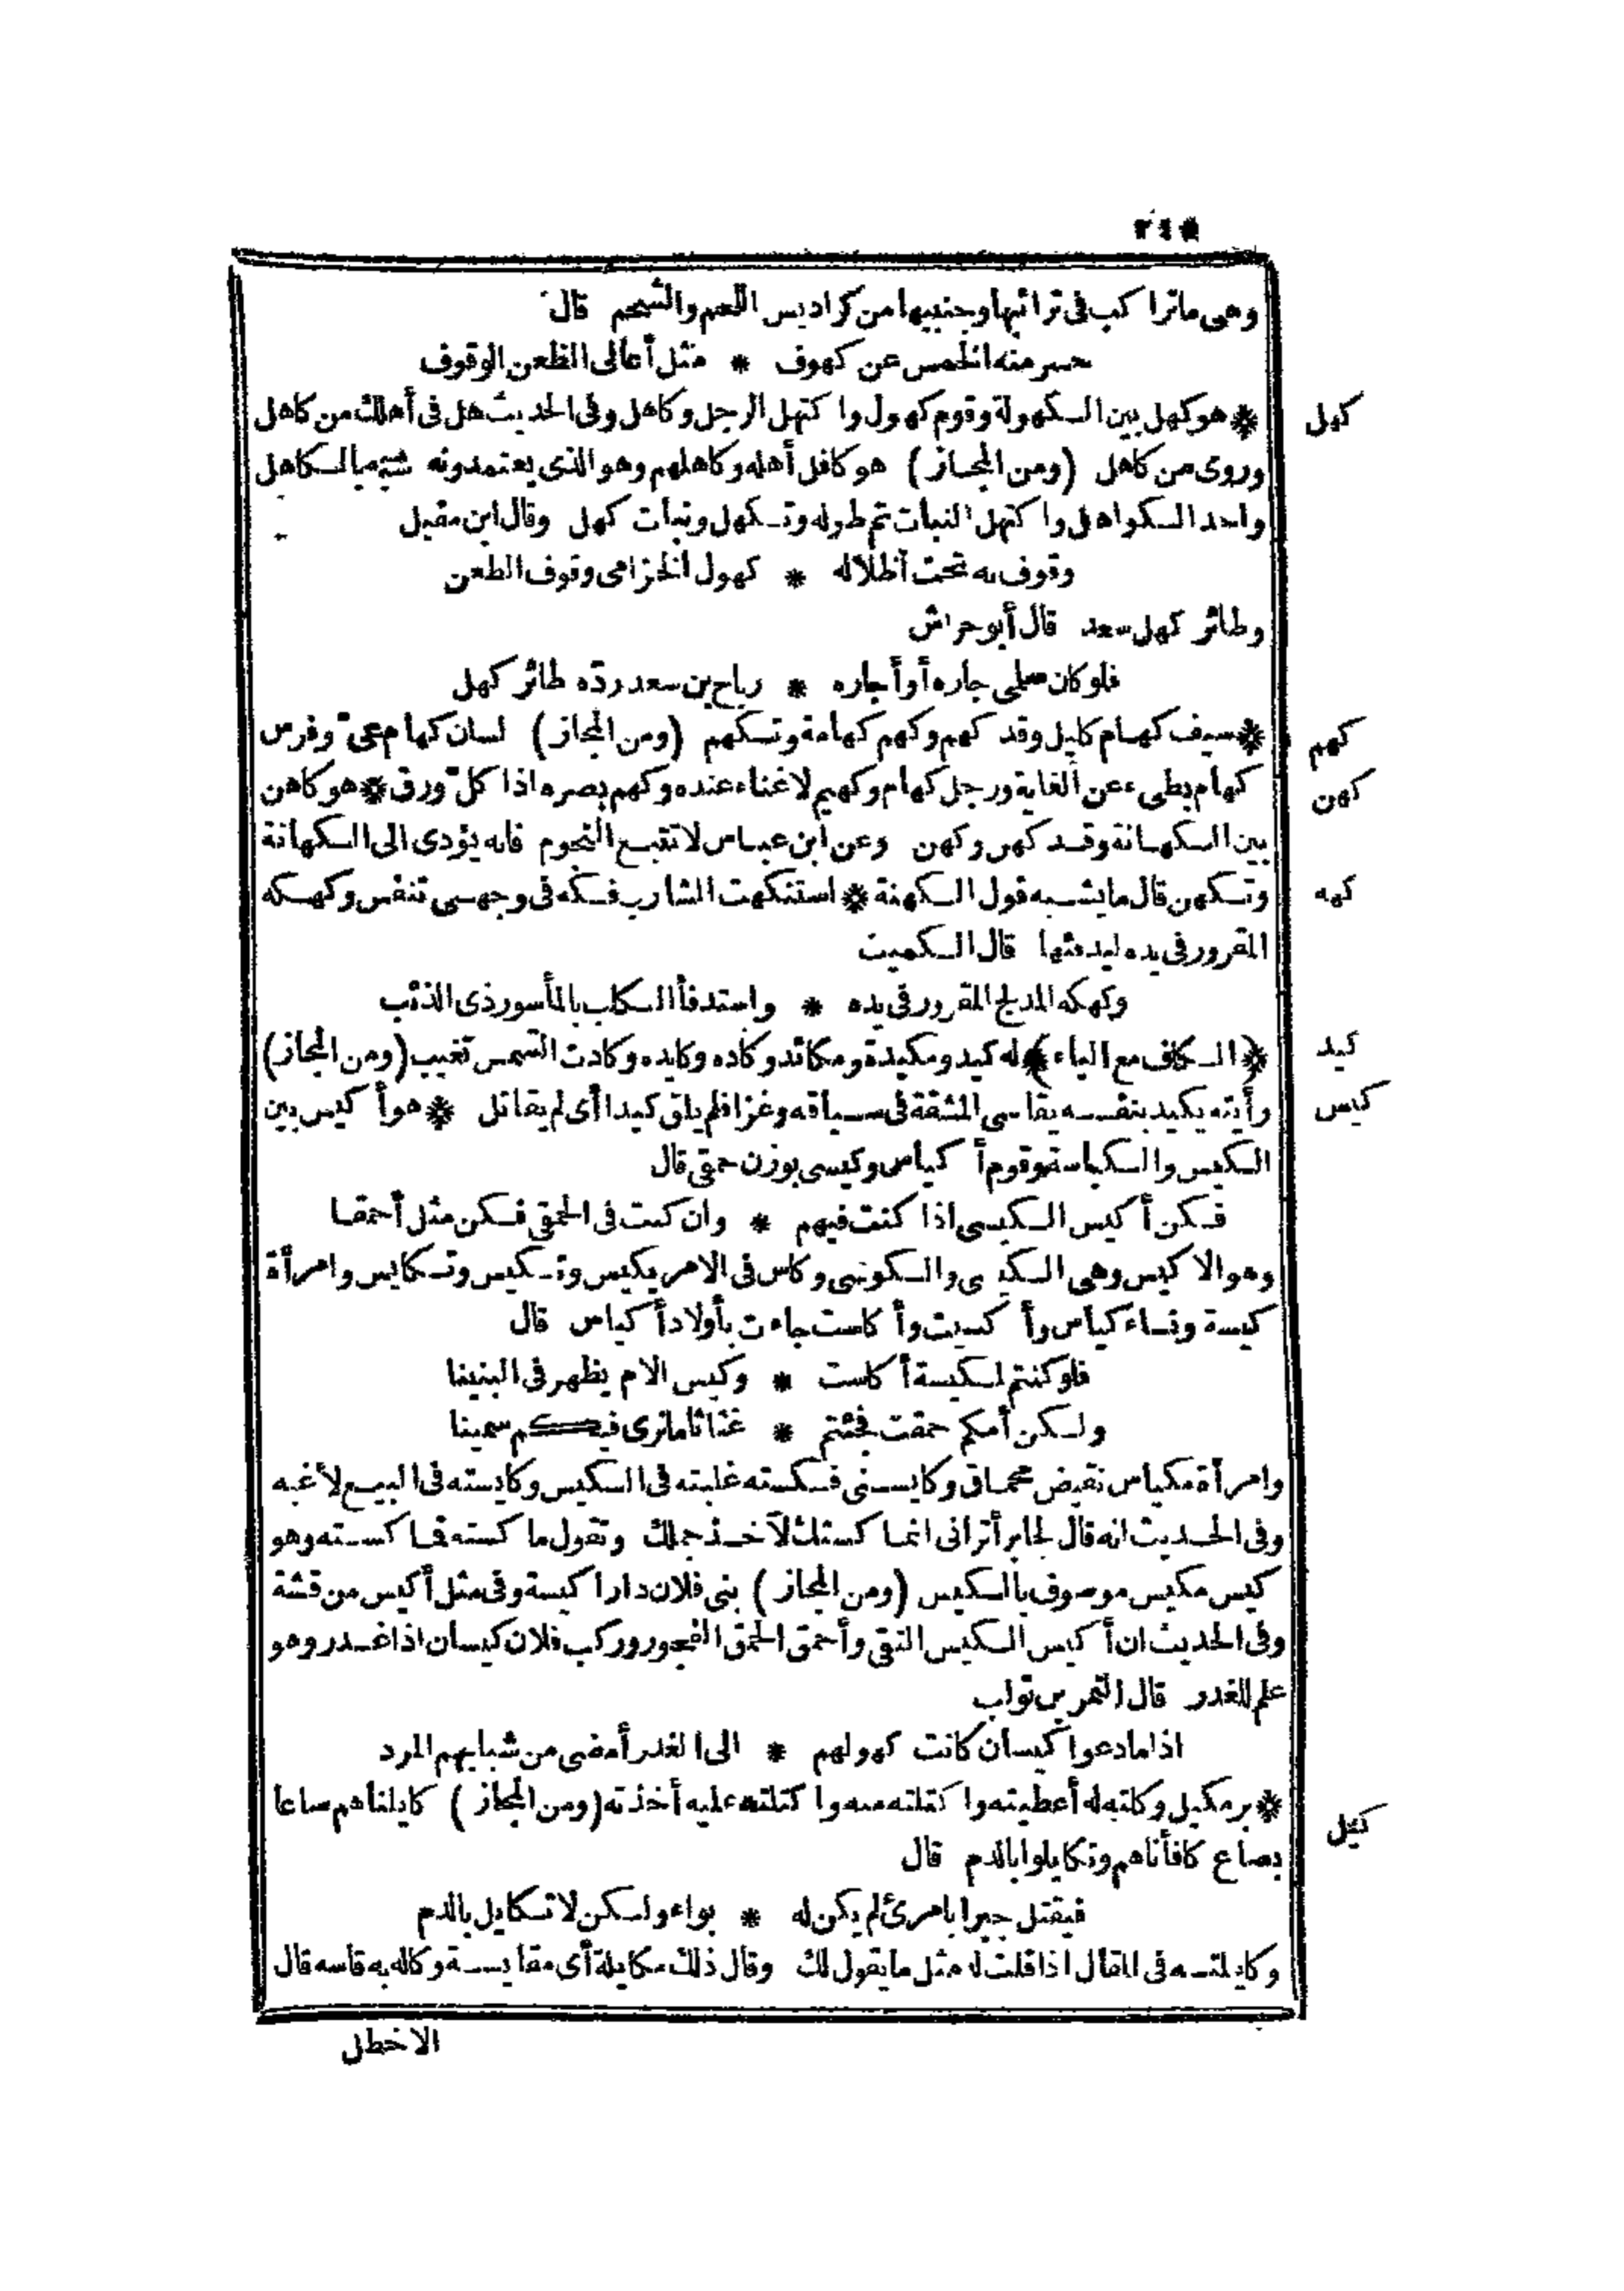 ٢٤٥
وهي ماترا كب في ترائبها وجنبيها من كراديس اللحم والشحم قال
حسر منه الخمس عن كهوف * مثل أعالى الظعن الوقوف
كهل
* هو كهل بين الكهولة وقوم كهول واكتهل الرجل وكاهل وفى الحديث هل فى أهلك من كاهل
وروى من كاهل (ومن المجاز) هو كافل أهله وكاهلهم وهو الذى يعتمدونه شبه بالكاهل
واحد الكواهل واكتهل النبات تم طوله وتكهل ونبات كهل وقال ابن مقبل
وقوف به تحت أظلاله * كهول الخزامى وقوف الظعن
وطائر كهل سعد قال أبو خراش
فلو كان سلمى جاره أو أجاره * رباح بن سعد رده طائر كهل
كهم
* سيف كهام كليل وقد كهم وكهم كهامة وتكهم (ومن المجاز) لسان كهام عىّ وفرس
كهن
كهام بطىء عن الغاية ورجل كهام وكهيم لا غناء عنده وكهم بصره اذا كلّ ورق * هو كاهن
بين الكهانة وقد كهن وكهن وعن ابن عباس لا تتبع النجوم فانه يؤدى الى الكهانة
كهه
وتكهن قال ما يشبه قول الكهنة * استنكهت الشارب فكه فى وجهى تنفس وكهكه
المقرور فى يده ليدفئها قال الكميت
وكهكه المدلج المقرور فى يده * واستدفأ الكلب بالمأسور ذى الذئب
كيد
(الكاف مع الياء) * له كيد ومكيدة ومكائد وكاده وكايده وكادت الشمس تغيب (ومن المجاز)
كيس
رأيته يكيد بنفسه يقاسى المشقة فى سياقه وغزا فلم يلق كيدا أى لم يقاتل * هو أكيس بين
الكيس والكياسة وقوم أكياس وكيسى بوزن حمقى قال
فكن أكيس الكيسى اذا كنت فيهم * وان كنت فى الحمقى فكن مثل أحمقا
وهو الاكيس وهى الكيسى والكوسى وكاس فى الامر يكيس وتكيس وتكايس وامرأة
كيسة ونساء كياس وأكيست وأكاست جاءت بأولاد أكياس قال
فلو كنتم لكيسة أكاست * وكيس الام يظهر فى البنينا
ولكن أمكم حمقت فجئتم * غثاثا ماترى فيكم سمينا
وامرأة مكياس نقيض محماق وكايسنى فكسته غلبته فى الكيس وكايسته فى البيع لأغبه
وفى الحديث انه قال لجابر أترانى انما كستك لآخذ جملك وتقول ما كسته فما كسته وهو
كيس مكيس موصوف بالكيس (ومن المجاز) بنى فلان دارا كيسة وفى مثل أكيس من قشة
وفى الحديث ان أكيس الكيس التقى وأحمق الحمق الفجور وركب فلان كيسان اذا غدر وهو
علم للغدر قال النمر بن تولب
اذا ما دعوا كيسان كانت كهولهم * الى الغدر أمضى من شبابهم المرد
كيل
* بر مكيل وكلته له أعطيته واكتلته منه واكتلته عليه أخذته (ومن المجاز) كايلناهم صاعا
بصاع كافأناهم وتكايلوا بالدم قال
فيقتل جبرا بامرئ لم يكن له * بواء ولكن لا تكايل بالدم
وكايلته فى المقال اذا قلت له مثل ما يقول لك وقال ذلك مكايلة أى مقايسة وكاله به قاسه قال
الاخطل